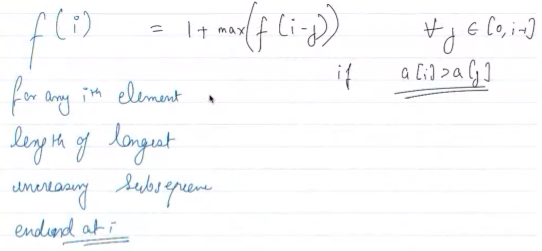 f(i) = 1 + max(f(i-j)) ∀ j ∈ [0, i-1]
if a[i] > a[j]
for any ith element
length of longest
increasing subsequence
endend at i